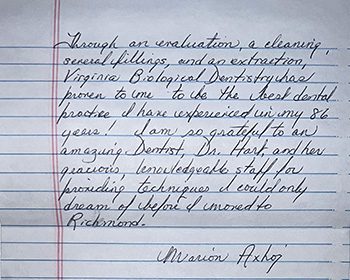 Through an evaluation, a cleaning,
several fillings, and an extraction,
Virginia Biological Dentistry has
proven to me to be the best dental
practice I have experienced in my 86
years! I am so grateful to an
amazing Dentist, Dr. Hart, and her
gracious, knowledgeable staff for
providing techniques I could only
dream of before I moved to
Richmond.
Marion